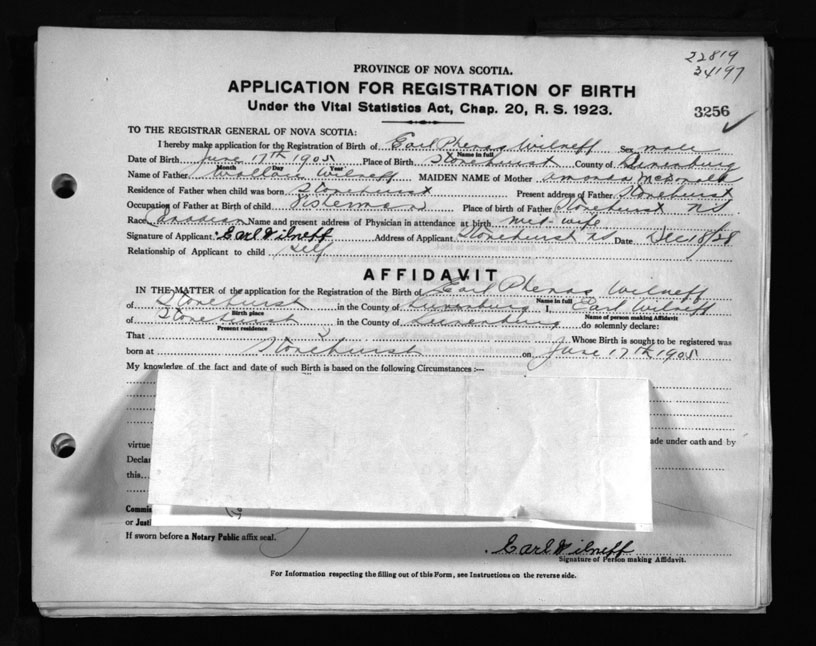 22819
34197
PROVINCE OF NOVA SCOTIA.
APPLICATION FOR REGISTRATION OF BIRTH
Under the Vital Statistics Act, Chap. 20, R. S. 1923.
3256
TO THE REGISTRAR GENERAL OF NOVA SCOTIA:
I hereby make application for the Registration of Birth of Earl Phenas Wilneff Sex male
Name in full
Date of Birth June 17th 1905 Place of Birth Stonehurst County of Lunenburg
Month Day Year
Name of Father Wallace Wilneff MAIDEN NAME of Mother Amanda McDonald
Residence of Father when child was born Stonehurst Present address of Father Stonehurst
Occupation of Father at Birth of child Fisherman Place of birth of Father Stonehurst NS
Race Canadian Name and present address of Physician in attendance at birth mid-wife
Signature of Applicant Earl Wilneff Address of Applicant Stonehurst NS Date Dec 18/28
Relationship of Applicant to child self
AFFIDAVIT
IN THE MATTER of the application for the Registration of the Birth of Earl Phenas Wilneff
Name in full
of Stonehurst in the County of Lunenburg I, Earl Wilneff
Birth place Name of person making Affidavit
of Stonehurst in the County of Lunenburg do solemnly declare:
Present residence
That Whose Birth is sought to be registered was
born at Stonehurst on June 17th 1905
My knowledge of the fact and date of such Birth is based on the following Circumstances :—
virtue ade under oath and by
Decla
this
Commis
or Justi
If sworn before a Notary Public affix seal.
Earl Wilneff
Signature of Person making Affidavit.
For Information respecting the filling out of this Form, see Instructions on the reverse side.